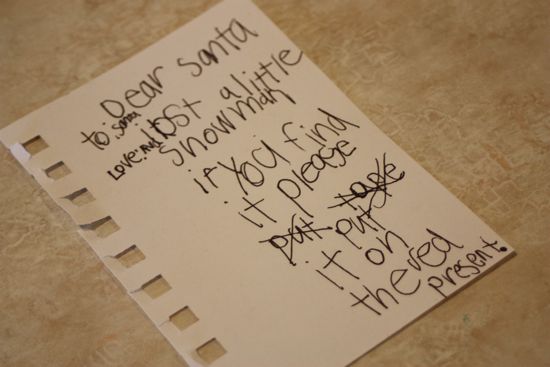 Dear Santa
to: Santa
Love: 
I lost a little
snowman
if you find
it please
put
put
it on
the red
present.